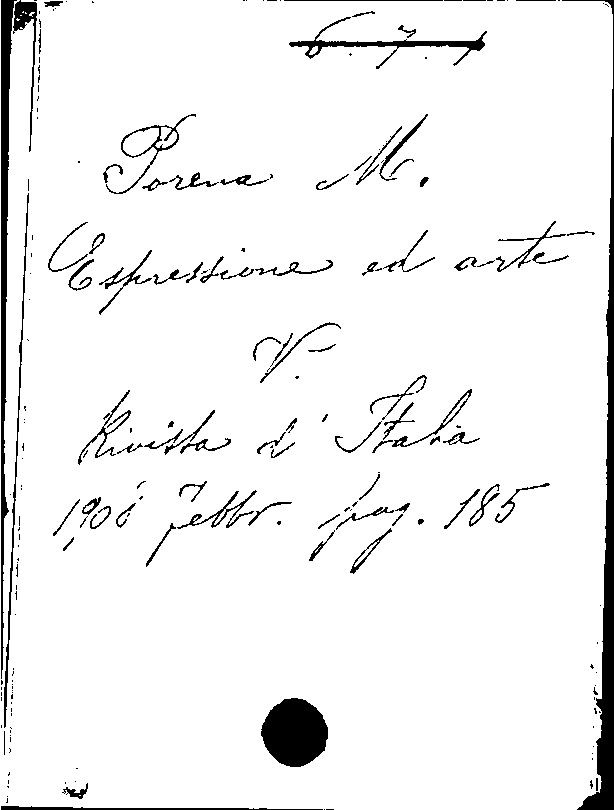 6. 7. 1
Porena M.
Espressione ed arte
V.
Rivista d' Italia
1906 Febbr. pag. 185